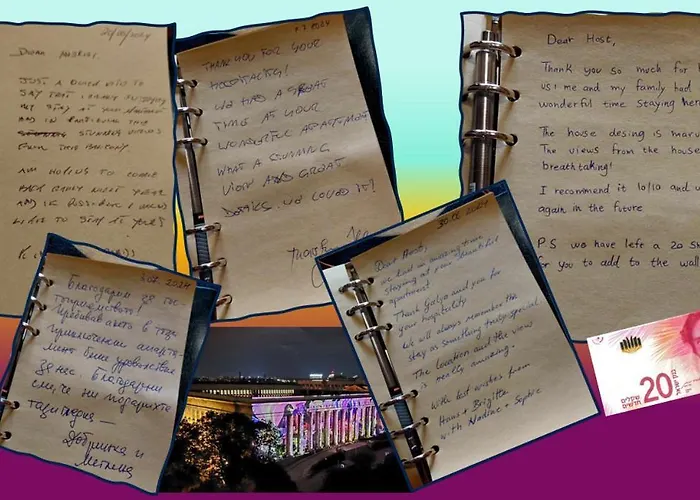 20/03/2024
JUST A QUICK NOTE TO
SAY THAT I REALLY ENJOYED
MY STAY AT YOUR APARTMENT
AND IN PARTICULAR THE
STUNNING VIEWS
FROM THE BALCONY.
AM HOPING TO COME
BACK EARLY NEXT YEAR
AND IF POSSIBLE I WOULD
LIKE TO STAY AT YOURS
2024
THANK YOU FOR YOUR
HOSPITALITY!
WE HAD A GREAT
TIME AT YOUR
WONDERFUL APARTMENT
WHAT A STUNNING
VIEW AND GREAT
WE LOVED IT!
Dear Host,
Thank you so much for
us! me and my family had
wonderful time staying her
The house desing is mar
The views from the house
breathtaking!
I recommend it 10/10 and
again in the future
P.S we have left a 20 S
for you to add to the wall
2024
Благодарим за гос-
топриемството!
Прекарването в този
апарта-
мент беше удоволствие
за нас. Благодарим
си, че ни подарихте
тази гледка —
и
30.12.2024
Dear Host,
we had an amazing time
staying at your beautiful
apartment.
Thank Galya and you for
your hospitality.
We will always remember this
stay as something truly special
The location and the view
is really amazing.
With best wishes from
Hans + Brigitte
with Nadine + Sophie
20
שקלים
חדשים